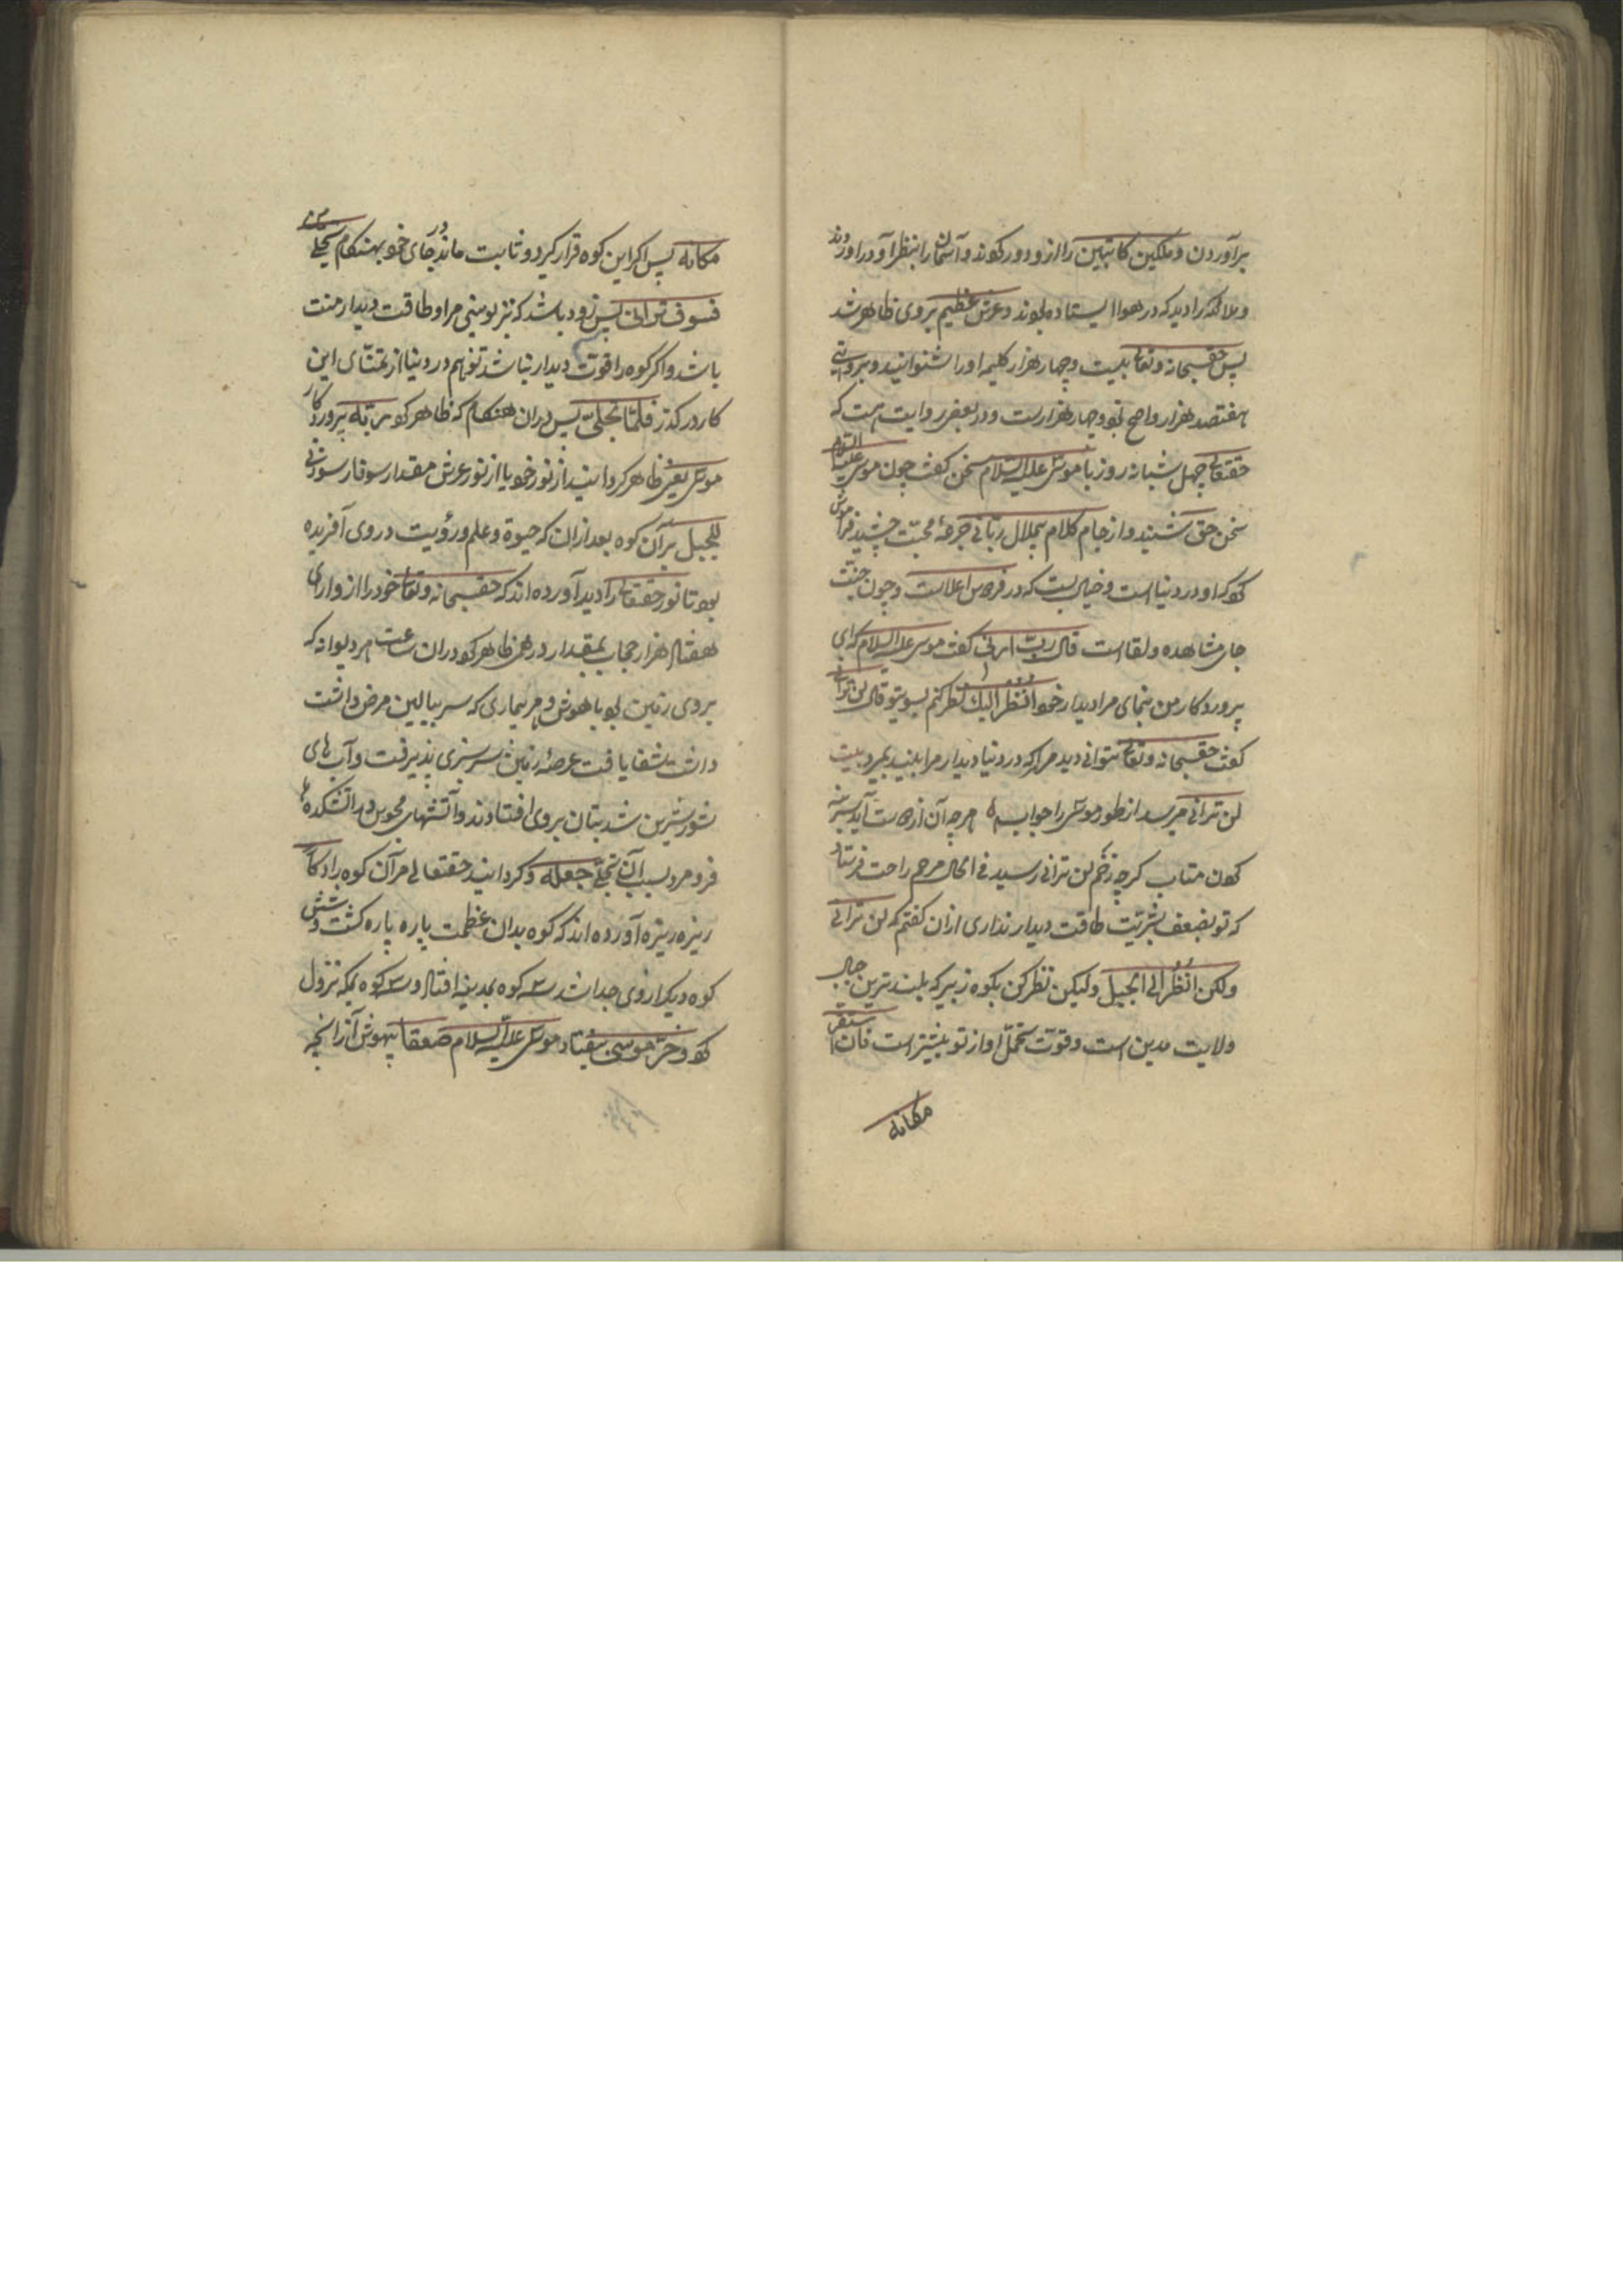 برآوردن و ملکین کاتبین را ازو دور کردند و آسمان را بنظر او درآوردند
و ملائکه را دید که در هوا ایستاده بودند و عرش عظیم بروی ظاهر شد
پس حقسبحانه وتعالی بیست و چهار هزار کلمه او را شنوانید و بروایتی
هفتصد هزار و اصح نود و چهار هزارست و در بعضی روایت است که
حقتعالی چهل شبانه روز با موسی علیه السلام سخن گفت چون موسی علیه السلام
سخن حق شنید و از جام کلام بیملال ربانی جرعهٔ محبت چشید فراموش
کرد که او در دنیا است و خیال بست که در فردوس اعلاست و چون جنت
جای مشاهده و لقا است قال رب ارنی گفت موسی علیه السلام که ای
پروردکار من بنمای مرا دیدار خود انظر الیک نظر کنم بسوی تو قال لن ترانی
گفت حقسبحانه وتعالی نتوانی دید مرا که در دنیا دیدار مرا بیند بمیرد بیت
لن ترانی میرسد از طور موسی را جواب هرچه آن از دوست آید سر بنه
کردن متاب گرچه زخم لن ترانی رسید فی الحال مرهم راحت فرستاد
که تو بضعف بشریت طاقت دیدار نداری ازان گفتم که لن ترانی
ولکن انظر الی الجبل ولیکن نظر کن بکوه زبیر که بلندترین جبال
ولایت مدین است و قوت تحمل او از تو بیشتر است فان استقر
مکانه
مکانه پس اگر این کوه قرار گیرد و ثابت ماند در جای خود بهنگام تجلی
فسوف ترانی پس زود باشد که تو ببینی مرا و طاقت دیدار منت
باشد و اگر کوه را قوت دیدار نباشد تو هم در دنیا از تمنای این
کار درگذر فلما تجلی پس دران هنگام که ظاهر کرد ربه پروردکار
موسی یعنی ظاهر گردانید از نور خود یا از نور عرش مقدار سوفار سوزنی
للجبل بر آن کوه بعد ازان که حیوة و علم و رؤیت در وی آفریده
بود تا نور حقتعالی را دید آورده اند که حقسبحانه وتعالی خود را از ورای
هفتاد هزار حجاب بمقدار درهمی ظاهر کرد دران ساعت هر دیوانه که
بروی زمین بود با هوش و هر بیماری که سر ببالین مرض داشت
داشت شفا یافت عرصهٔ زمین سرسبزی پذیرفت و آب های
شور شیرین شد بتان بروی افتادند و آتشهای مجوس در آتشکده ها
فرو مرد بسبب آن تجلی جعله و گردانید حقتعالی مر آن کوه را دکا
ریزه ریزه آورده اند که کوه بدان عظمت پاره پاره گشت و شش
کوه دیگر از وی جدا شد سه کوه بمدینه افتاد و سه کوه بمکه نزول
کرد و خر موسی بیفتاد موسی علیه السلام صعقا بیهوش از آنچه